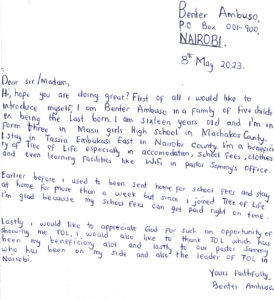 Benter Ambuso,
P.O Box 001-900,
NAIROBI.
8th May 2023.
Dear sir/Madam,
Hi, hope you are doing great? First of all I would like to
introduce myself, I am Benter Ambuso in a family of Five childr
en being the Last born. I am sixteen years old and I'm in
form three in Masii girls High School in Machakos County.
I stay in Tassia Embakasi East in Nairobi County. I'm a benefici
ry of Tree of Life especially in accomodation, school fees, clothes
and even learning facilities like Wifi in pastor Sammy's Office.
Earlier before I used to been sent home for school fees and stay
at home for more than a week but since I joined Tree of Life
I'm glad because my school fees can get paid right on time.
Lastly I would like to appreciate God for such an opportunity of
showing me TOL, I would also like to thank TOL which has
been my beneficiary alot and lastly to our pastor Sammy
who has been on my side and also the leader of TOL in
Nairobi.
Yours Faithfully,
Benter Ambuso.